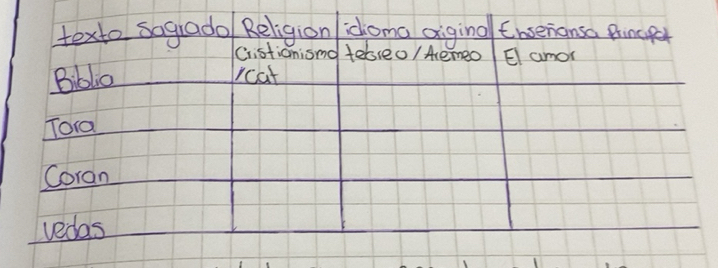 texto sagrado Religion idioma origino Enseñansa Principal
Cristianismo /cat hebreo / Arameo El amor
Biblia
Tora
Coran
vedas